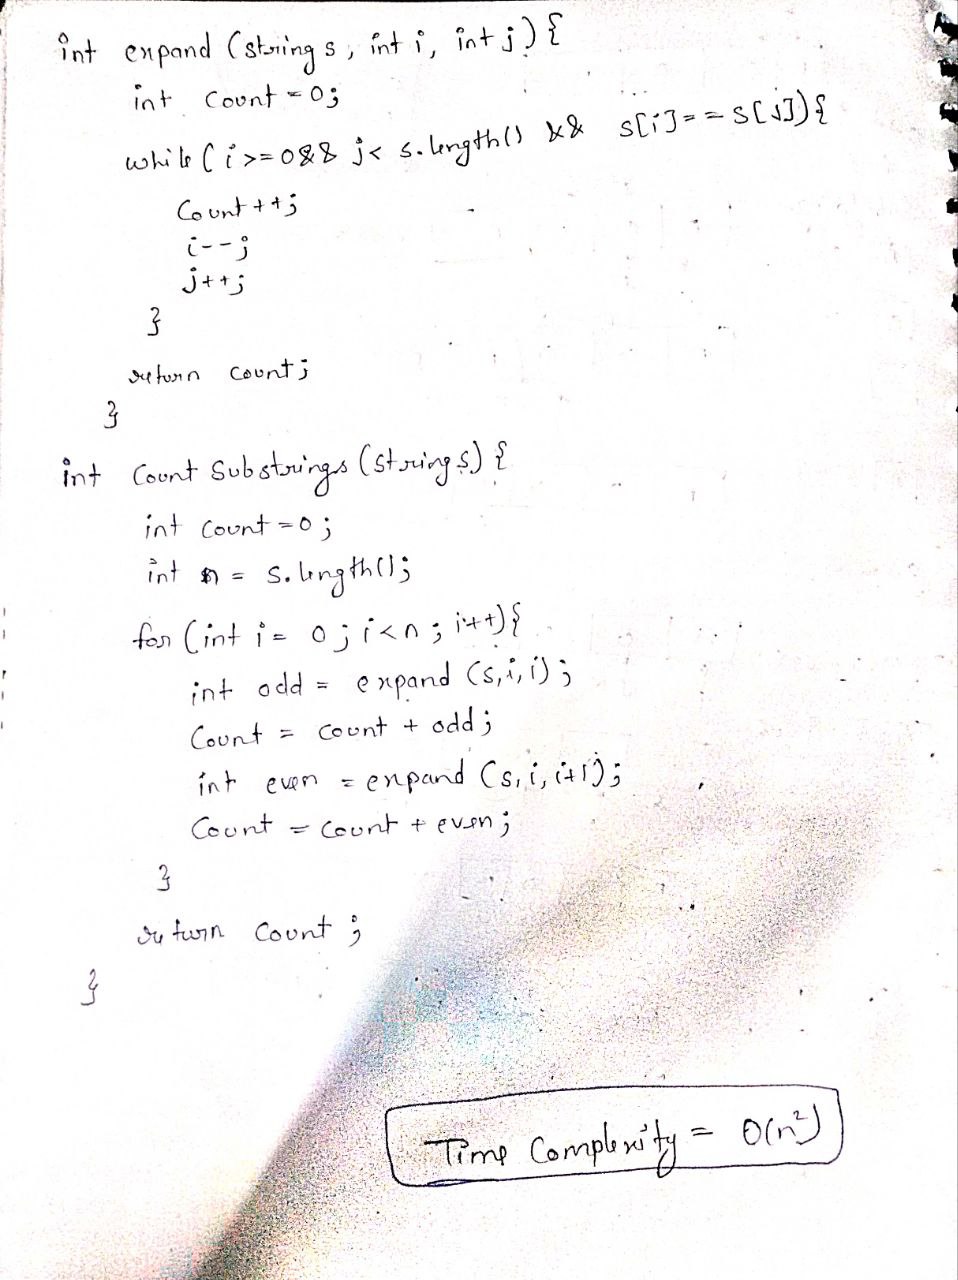 int expand (string s, int i, int j) {
int count = 0;
while (i >= 0 && j < s.length() && s[i] == s[j]) {
Count++;
i--;
j++;
}
return count;
}
int Count Substrings (string s) {
int count = 0;
int n = s.length();
for (int i = 0; i < n; i++) {
int odd = expand (s, i, i);
Count = count + odd;
int even = expand (s, i, i+1);
Count = count + even;
}
return count;
}
Time Complexity = O(n²)